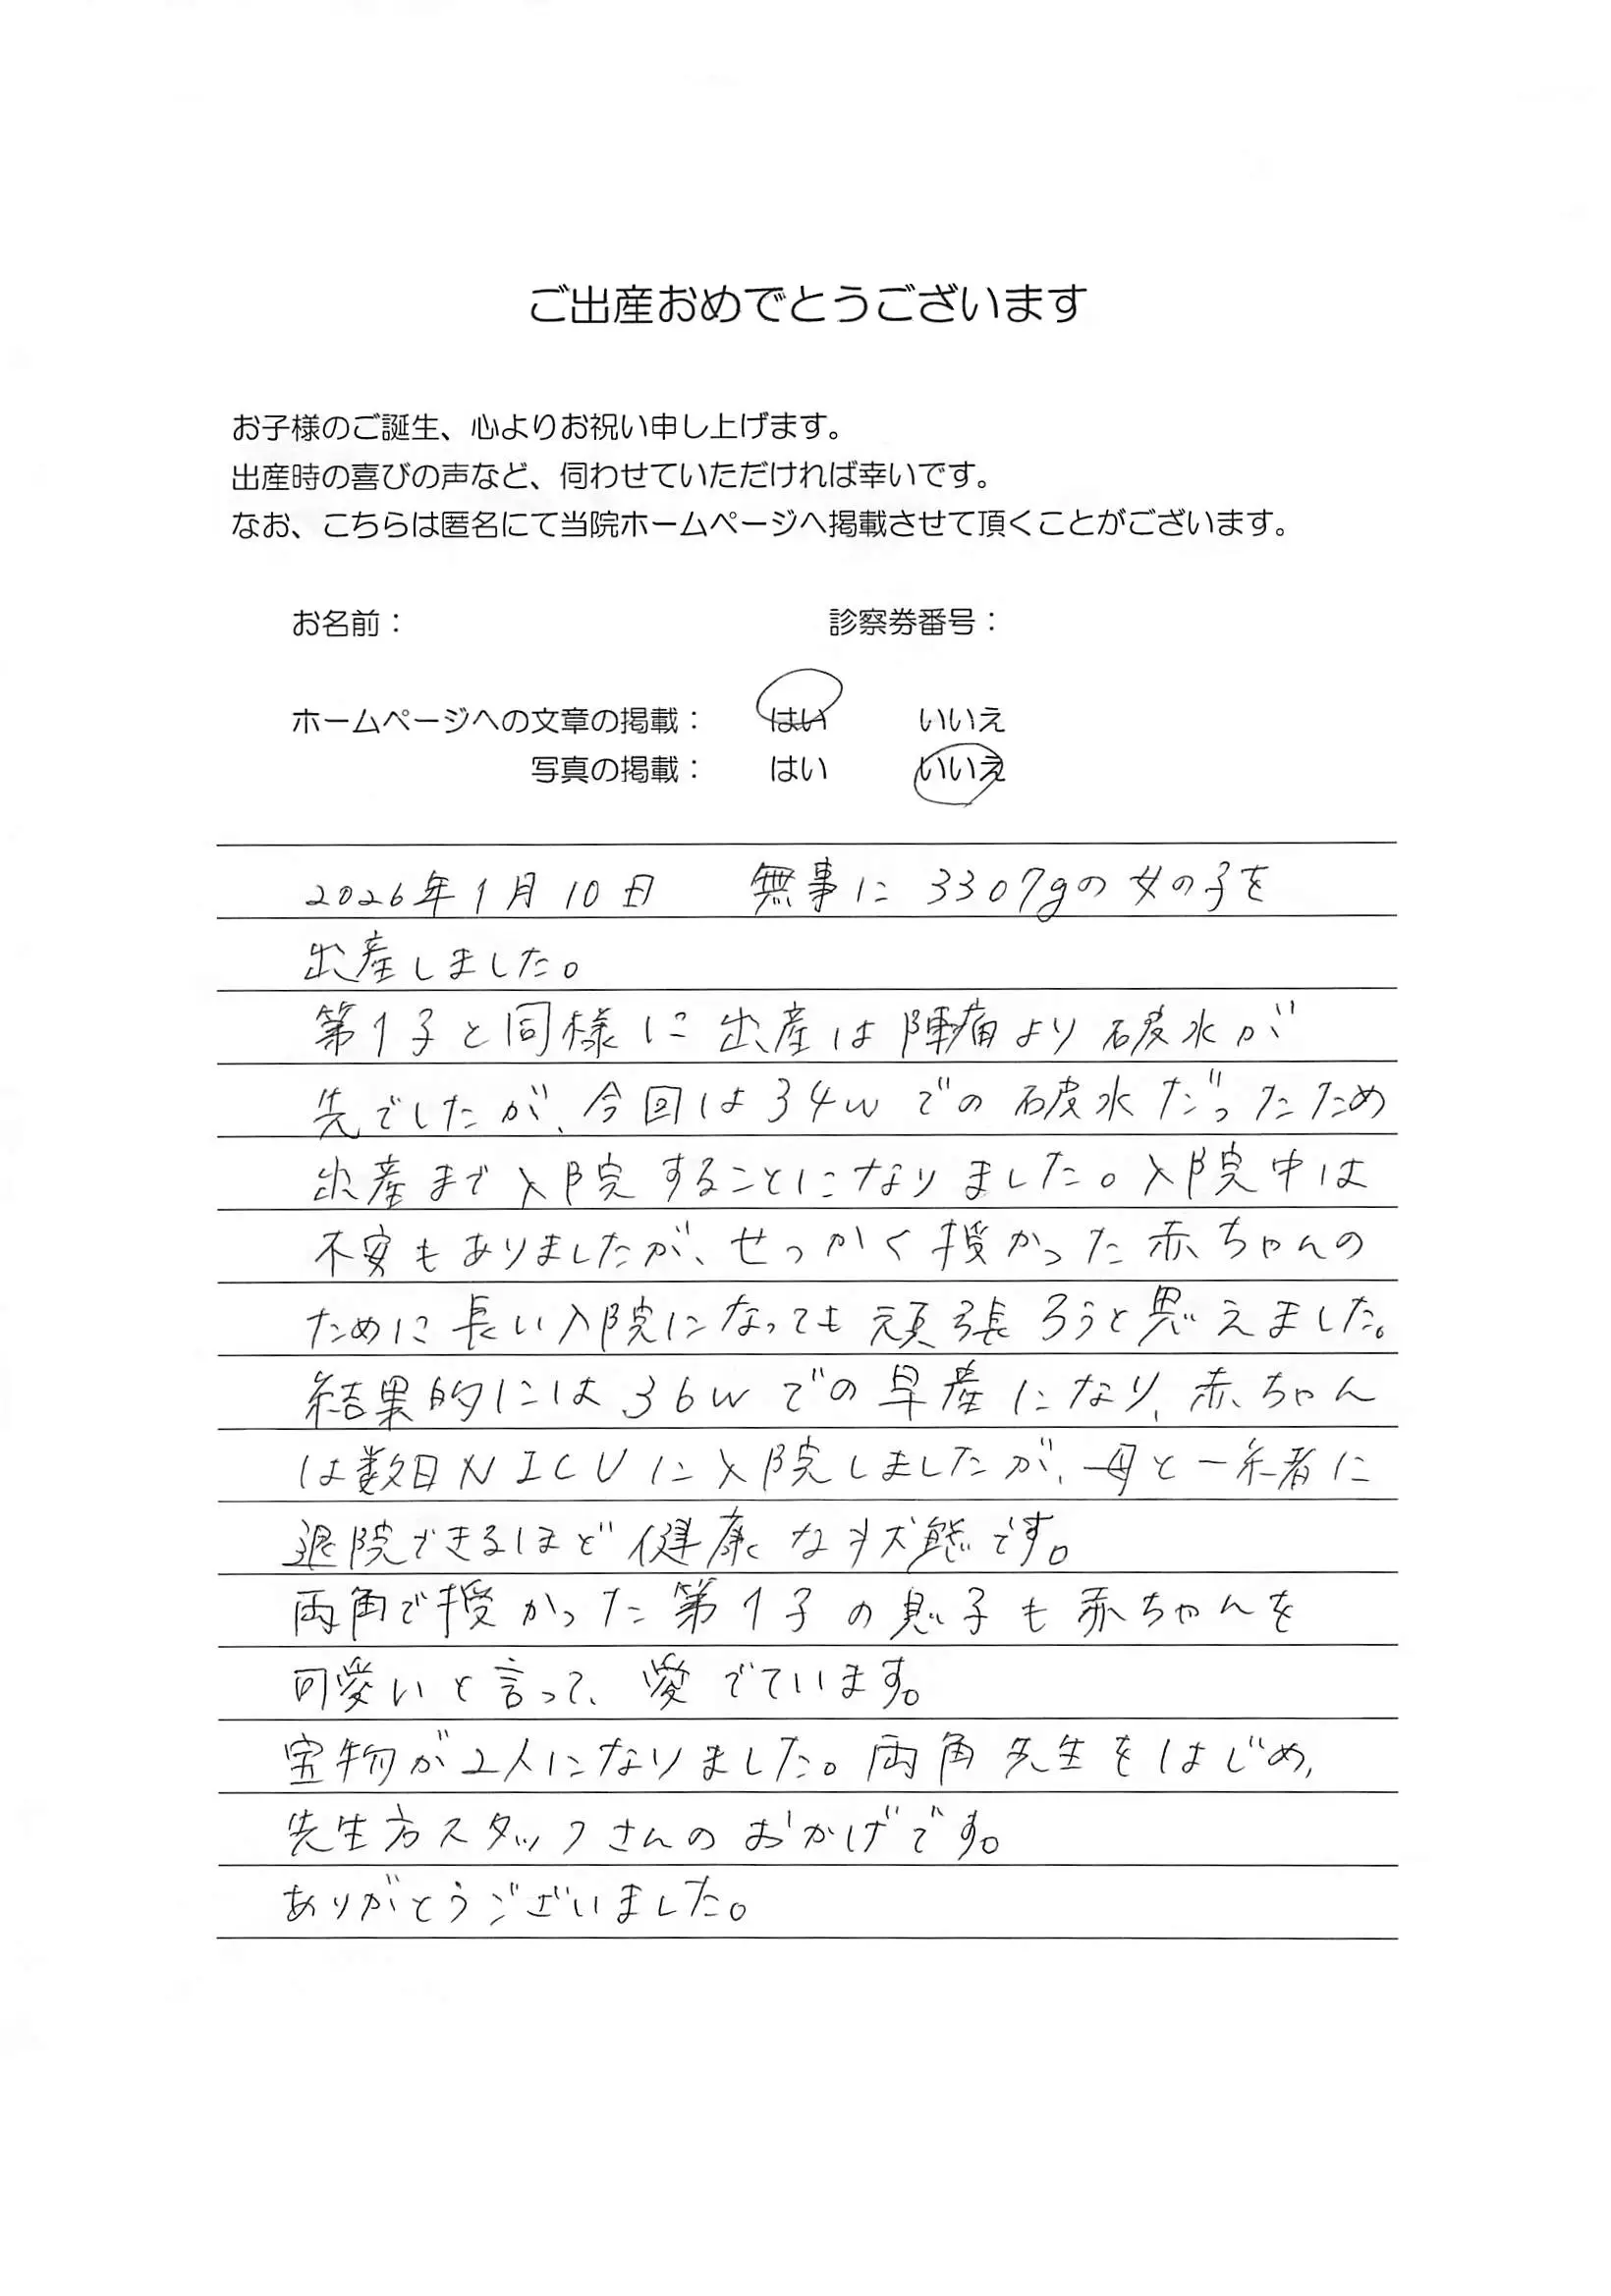 ご出産おめでとうございます
お子様のご誕生、心よりお祝い申し上げます。
出産時の喜びの声など、伺わせていただければ幸いです。
なお、こちらは匿名にて当院ホームページへ掲載させて頂くことがございます。
お名前： 診察券番号：
ホームページへの文章の掲載： はい いいえ
写真の掲載： はい いいえ
2026年1月10日 無事に3307gの女の子を
出産しました。
第1子と同様に出産は陣痛より破水が
先でしたが、今回は34wでの破水だったため
出産まで入院することになりました。入院中は
不安もありましたが、せっかく授かった赤ちゃんの
ために長い入院になっても頑張ろうと思えました。
結果的には36wでの早産になり、赤ちゃん
は数日NICUに入院しましたが、母と一緒に
退院できるほど健康な状態です。
両角で授かった第1子の息子も赤ちゃんを
可愛いと言って、愛でています。
宝物が2人になりました。両角先生をはじめ、
先生方スタッフさんのおかげです。
ありがとうございました。